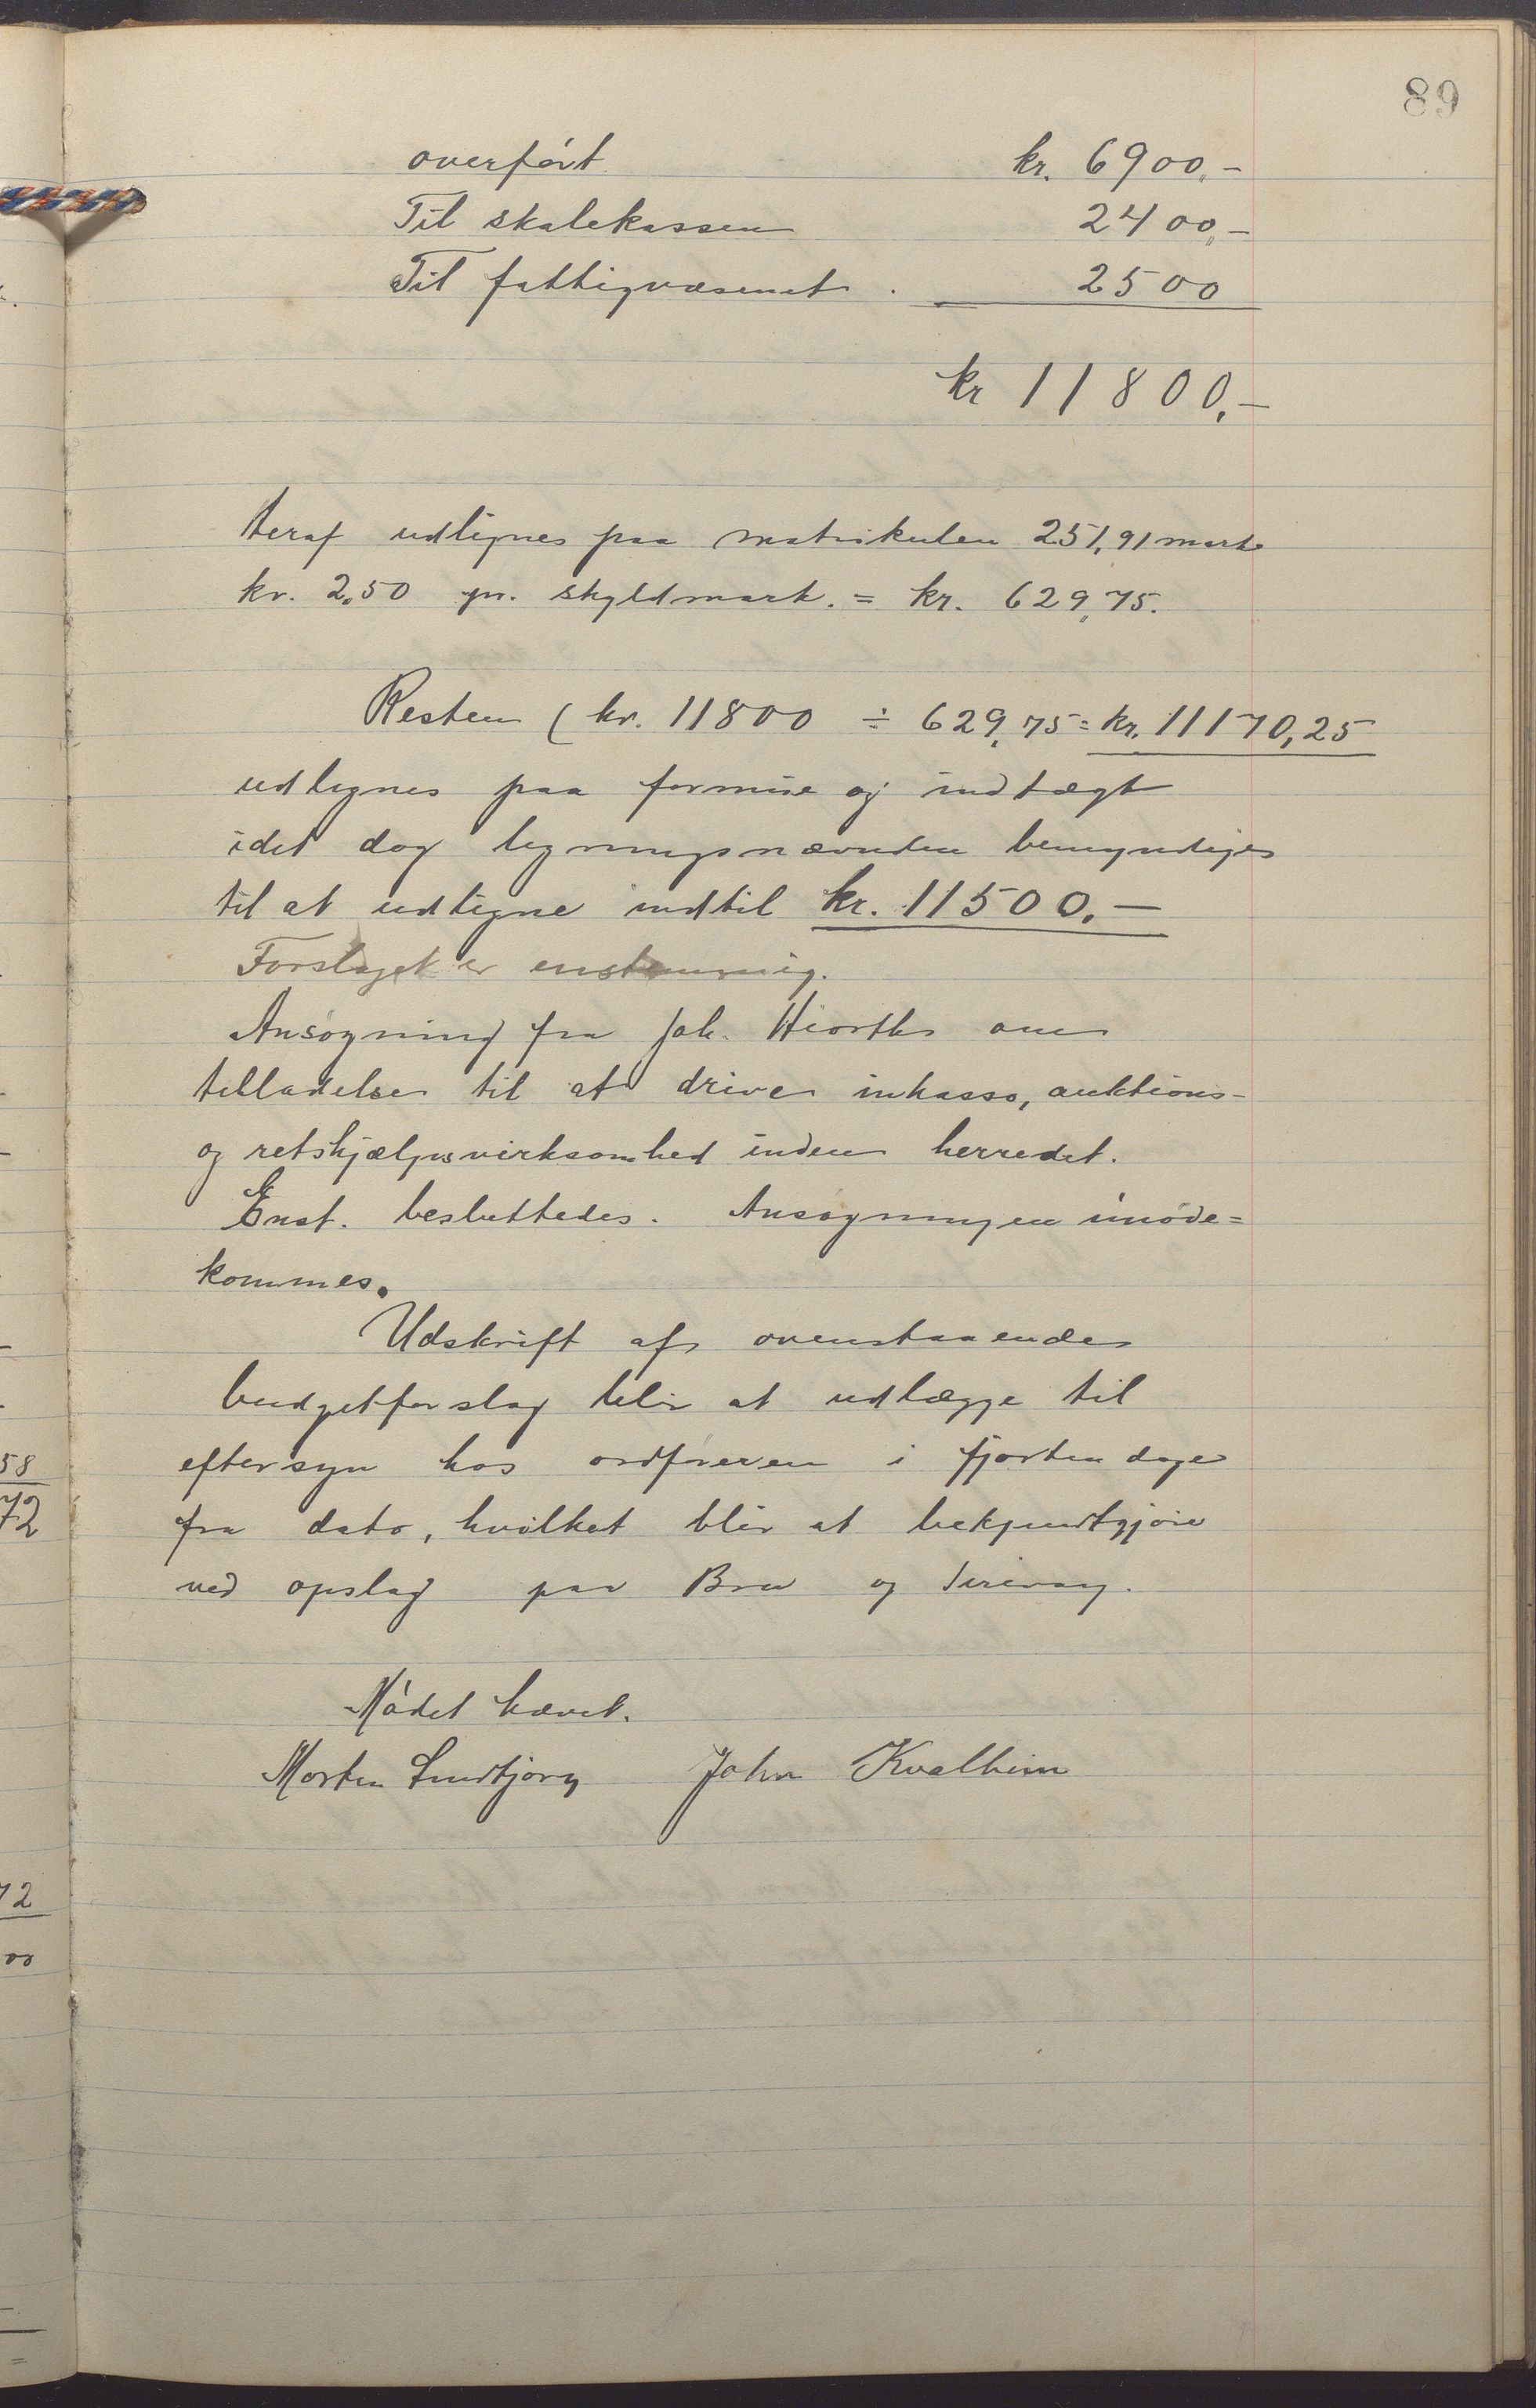 89
overført kr. 6900,-
Til skolekassen 2400,-
Til fattigvæsenet . 2500
kr 11800,-
Heraf udlignes paa matrikulen 251,91 mark
kr. 2,50 pr. skyldmark. = kr. 629,75.
Resten ( kr. 11800 ÷ 629,75 = kr. 11170,25
udlignes paa formue og indtægt
idet dog ligningsnævnden bemyndiges
til at udligne indtil kr. 11500.-
Forslaget er enstemmig.
Ansøgning fra Joh. Hiorth om
tilladelse til at drive inkasso, auktions-
og retshjælpsvirksomhed inden herredet.
Enst. besluttedes. Ansøgningen imøde=
kommes.
Udskrift af ovenstaaende
budgetforslag blir at udlægge til
eftersyn hos ordføreren i fjorten dage
fra dato, hvilket blir at bekjendtgjøre
ved opslag paa Bru og Sirevaag.
Mødet hævet.
Morten John Kvalheim
58
72
72
00